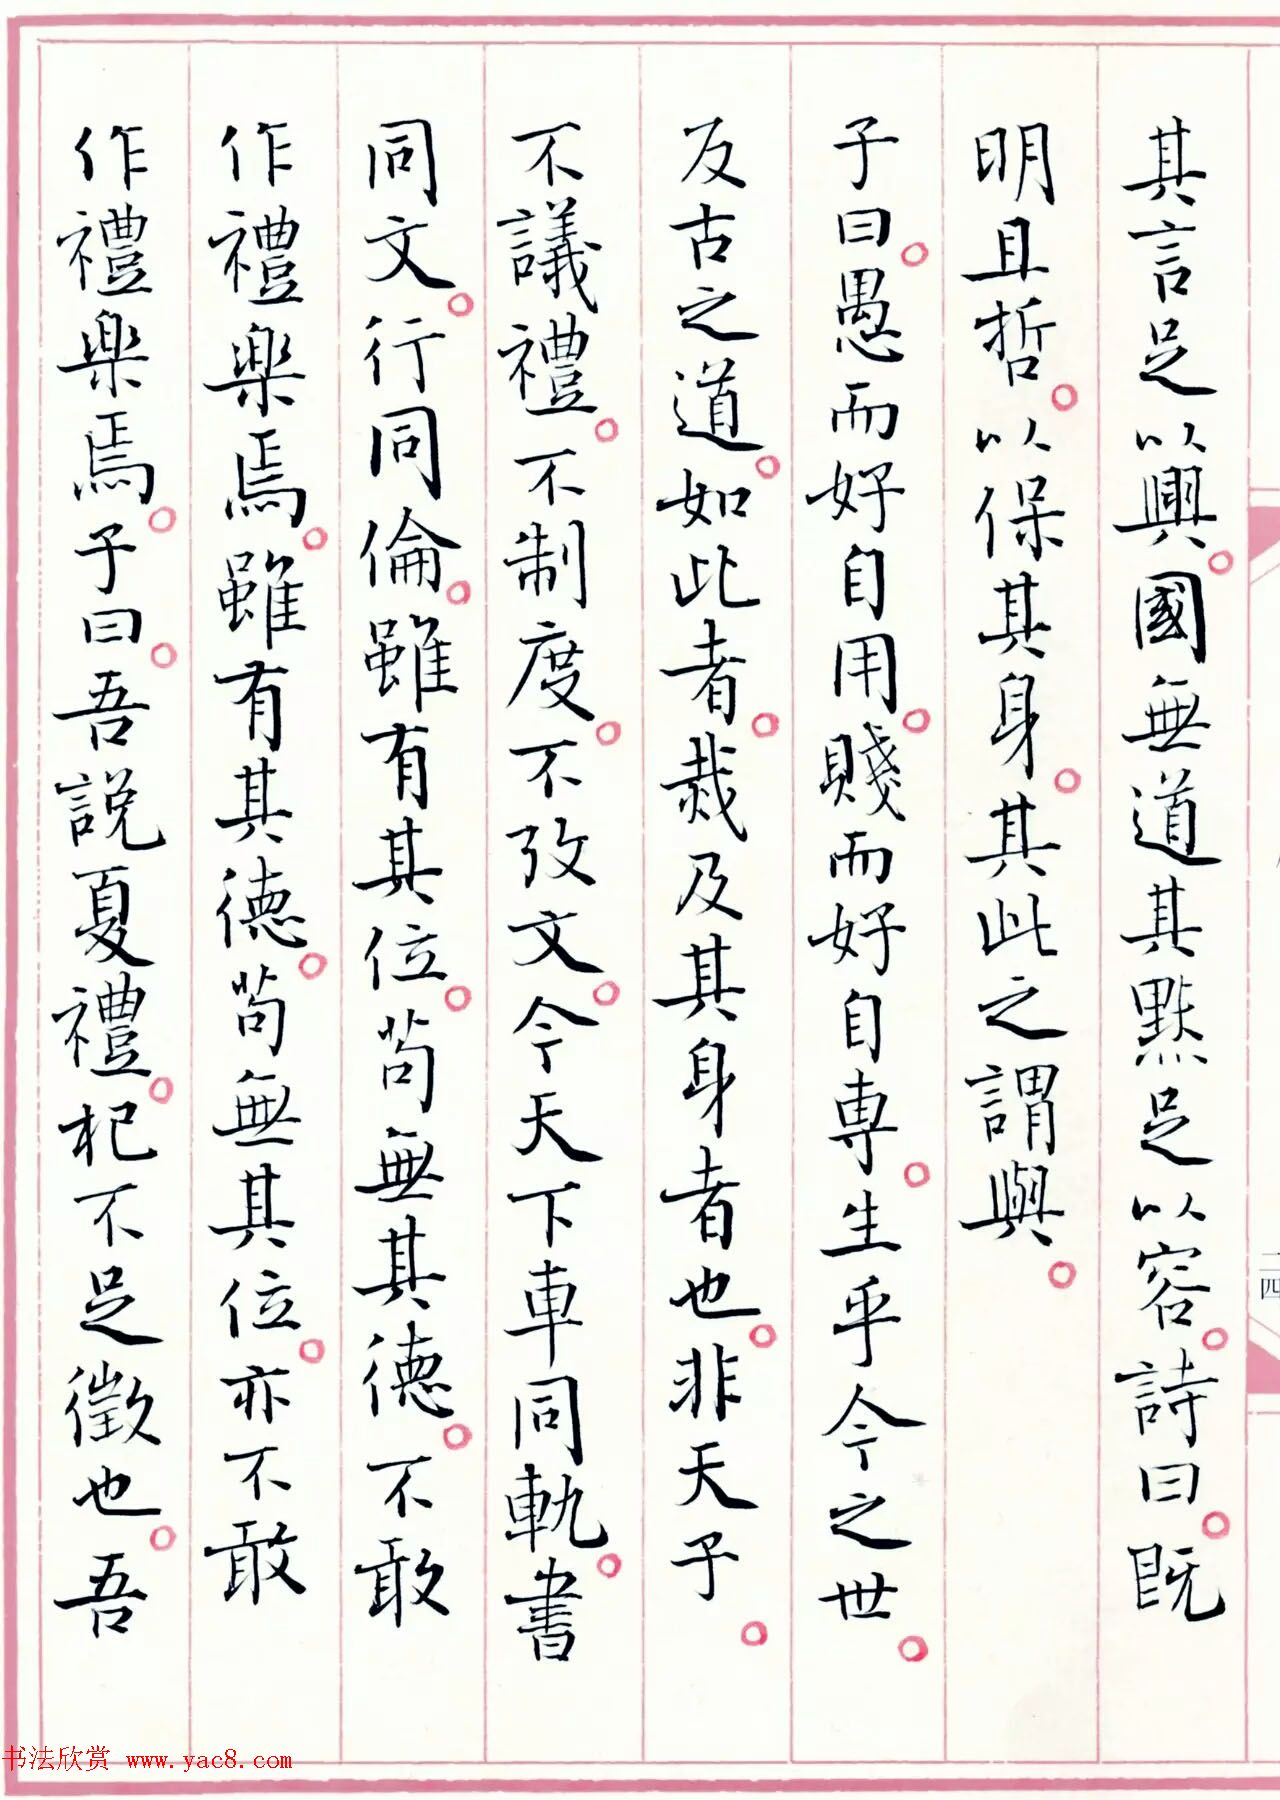 其言足以興。國無道其黙足以容。詩曰。既
明且哲。以保其身。其此之謂與。
子曰。愚而好自用。賤而好自專。生乎今之世。
反古之道。如此者。烖及其身者也。非天子。
不議禮。不制度。不攷文。今天下車同軌。書
同文。行同倫。雖有其位。苟無其德。不敢
作禮楽焉。雖有其德。苟無其位。亦不敢
作禮楽焉。子曰。吾説夏禮。杞不足徵也。吾
二四
书法欣赏 www.yac8.com